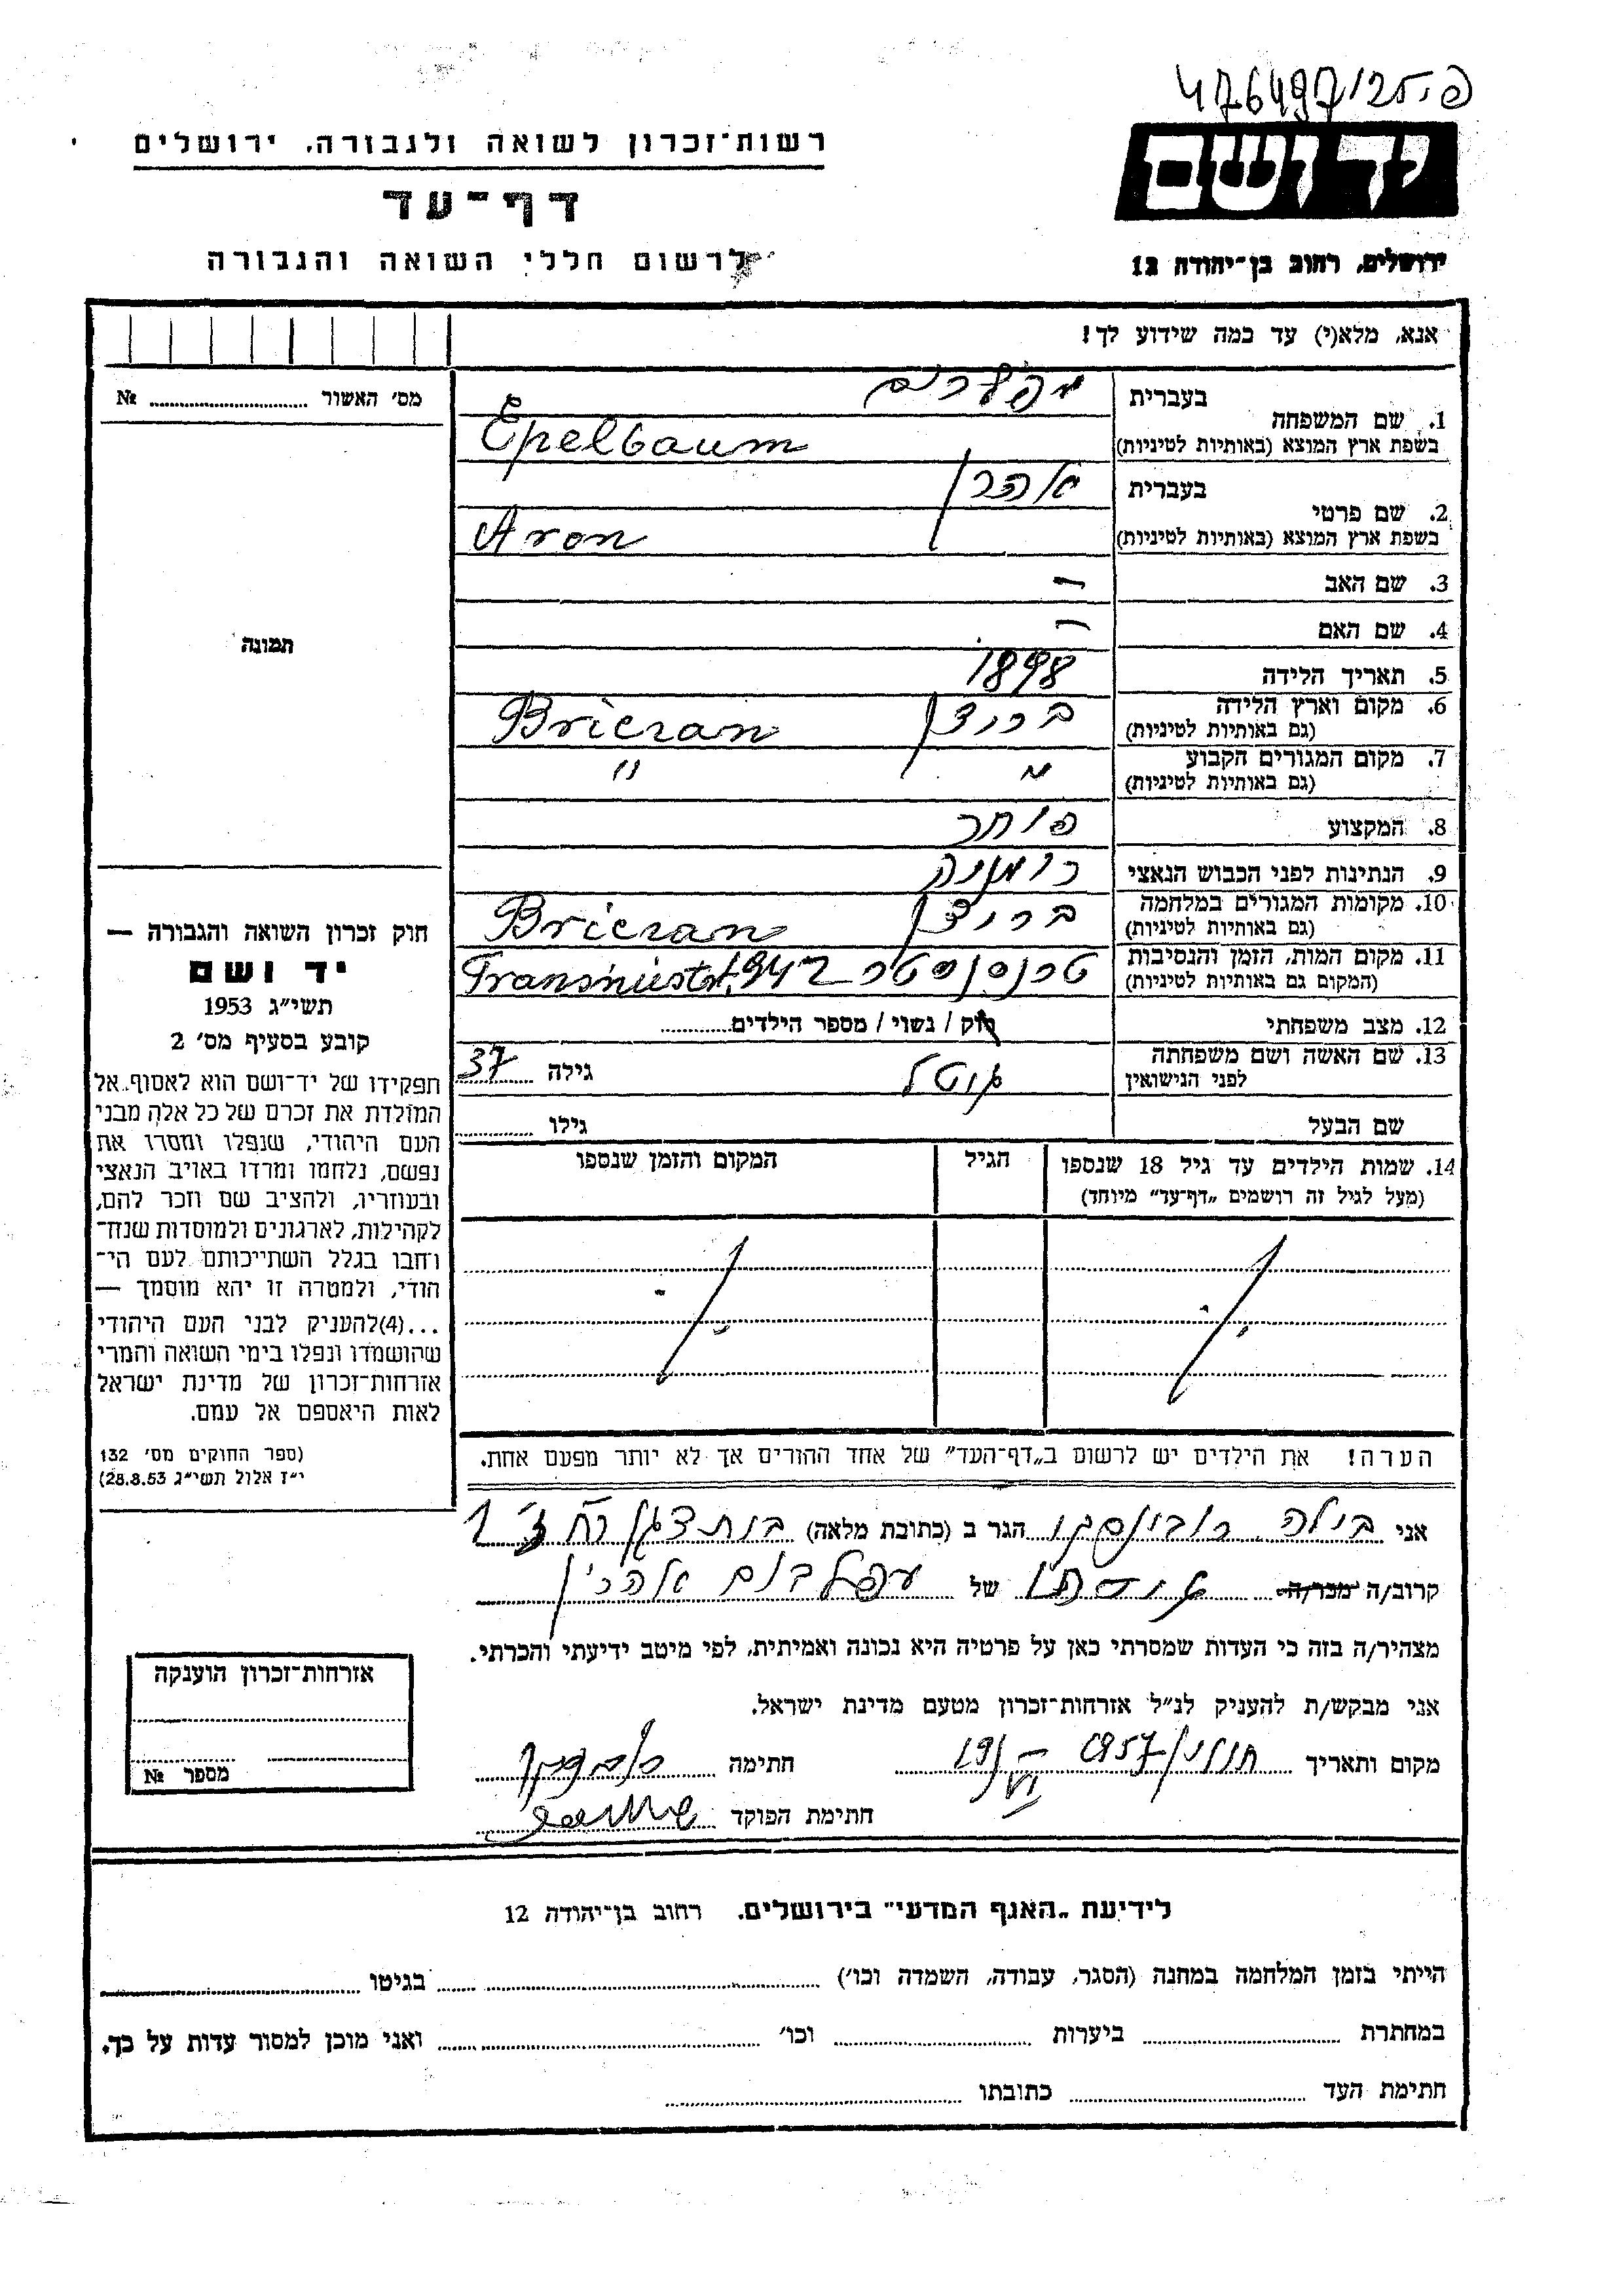 476497/25.פ
יד ושם
רשות־זכרון לשואה ולגבורה, ירושלים
דף־עד
לרשום חללי השואה והגבורה
ירושלים, רחוב בן־יהודה 12
אנא, מלא(י) עד כמה שידוע לך!
מס׳ האשור № 
תמונה
1. שם המשפחה
בעברית
בשפת ארץ המוצא (באותיות לטיניות) Epelbaum
2. שם פרטי
בעברית אהרן
בשפת ארץ המוצא (באותיות לטיניות) Aron
3. שם האב –
4. שם האם –
5. תאריך הלידה 1898
6. מקום וארץ הלידה
(גם באותיות לטיניות) בריצ'ן Briczan
7. מקום המגורים הקבוע
(גם באותיות לטיניות) " "
8. המקצוע סוחר
9. הנתינות לפני הכבוש הנאצי רומניה
10. מקומות המגורים במלחמה
(גם באותיות לטיניות) בריצ'ן Briczan
11. מקום המות, הזמן והנסיבות
(המקום גם באותיות לטיניות) טרנסניסטר 1942 Transniestr
12. מצב משפחתי רוק / נשוי / מספר הילדים
13. שם האשה ושם משפחתה
לפני הנישואין גיטל גילה 37
שם הבעל גילו
14. שמות הילדים עד גיל 18 שנספו
(מעל לגיל זה רושמים „דף־עד״ מיוחד)
הגיל
המקום והזמן שנספו
הערה! את הילדים יש לרשום ב„דף־העד״ של אחד ההורים אך לא יותר מפעם אחת.
חוק זכרון השואה והגבורה —
יד ושם
תשי״ג 1953
קובע בסעיף מס׳ 2
תפקידו של יד־ושם הוא לאסוף אל
המולדת את זכרם של כל אלה מבני
העם היהודי, שנפלו ומסרו את
נפשם, נלחמו ומרדו באויב הנאצי
ובעוזריו, ולהציב שם וזכר להם,
לקהילות, לארגונים ולמוסדות שנח־
רחבו בגלל השתייכותם לעם הי־
הודי, ולמטרה זו יהא מוסמך —
...(4)להעניק לבני העם היהודי
שהושמדו ונפלו בימי השואה והמרי
אזרחות־זכרון של מדינת ישראל
לאות היאספם אל עמם.
(ספר החוקים מס׳ 132
י״ז אלול תשי״ג 28.8.53)
אני בילה רובינסקי הגר ב (כתובת מלאה)
קרוב/ה מכר/ה של עפלבוים אהרן
מצהיר/ה בזה כי העדות שמסרתי כאן על פרטיה היא נכונה ואמיתית, לפי מיטב ידיעתי והכרתי.
אני מבקש/ת להעניק לנ״ל אזרחות־זכרון מטעם מדינת ישראל.
מקום ותאריך חתימה
חתימת הפוקד
אזרחות־זכרון הוענקה
מספר №
לידיעת „האגף המדעי״ בירושלים, רחוב בן־יהודה 12
הייתי בזמן המלחמה במחנה (הסגר, עבודה, השמדה וכו׳) בגיטו
במחתרת ביערות וכו׳ ואני מוכן למסור עדות על כך.
חתימת העד כתובתו